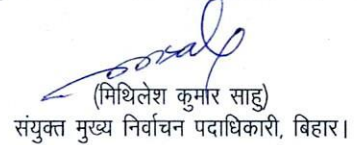 (मिथिलेश कुमार साहु)
संयुक्त मुख्य निर्वाचन पदाधिकारी, बिहार।